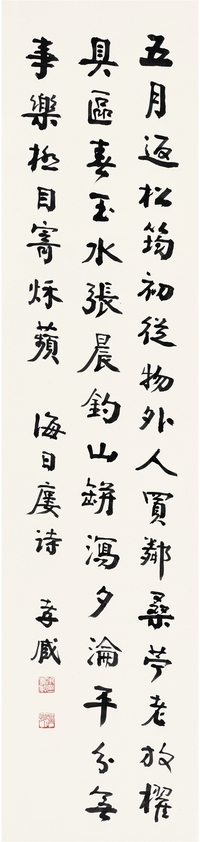 五月返松筠初從物外人買鄰桑苧老放櫂
具區春玉水張晨釣山缾瀉夕淪平分無
事樂極目寄烁蘋 海日廔诗 孝臧